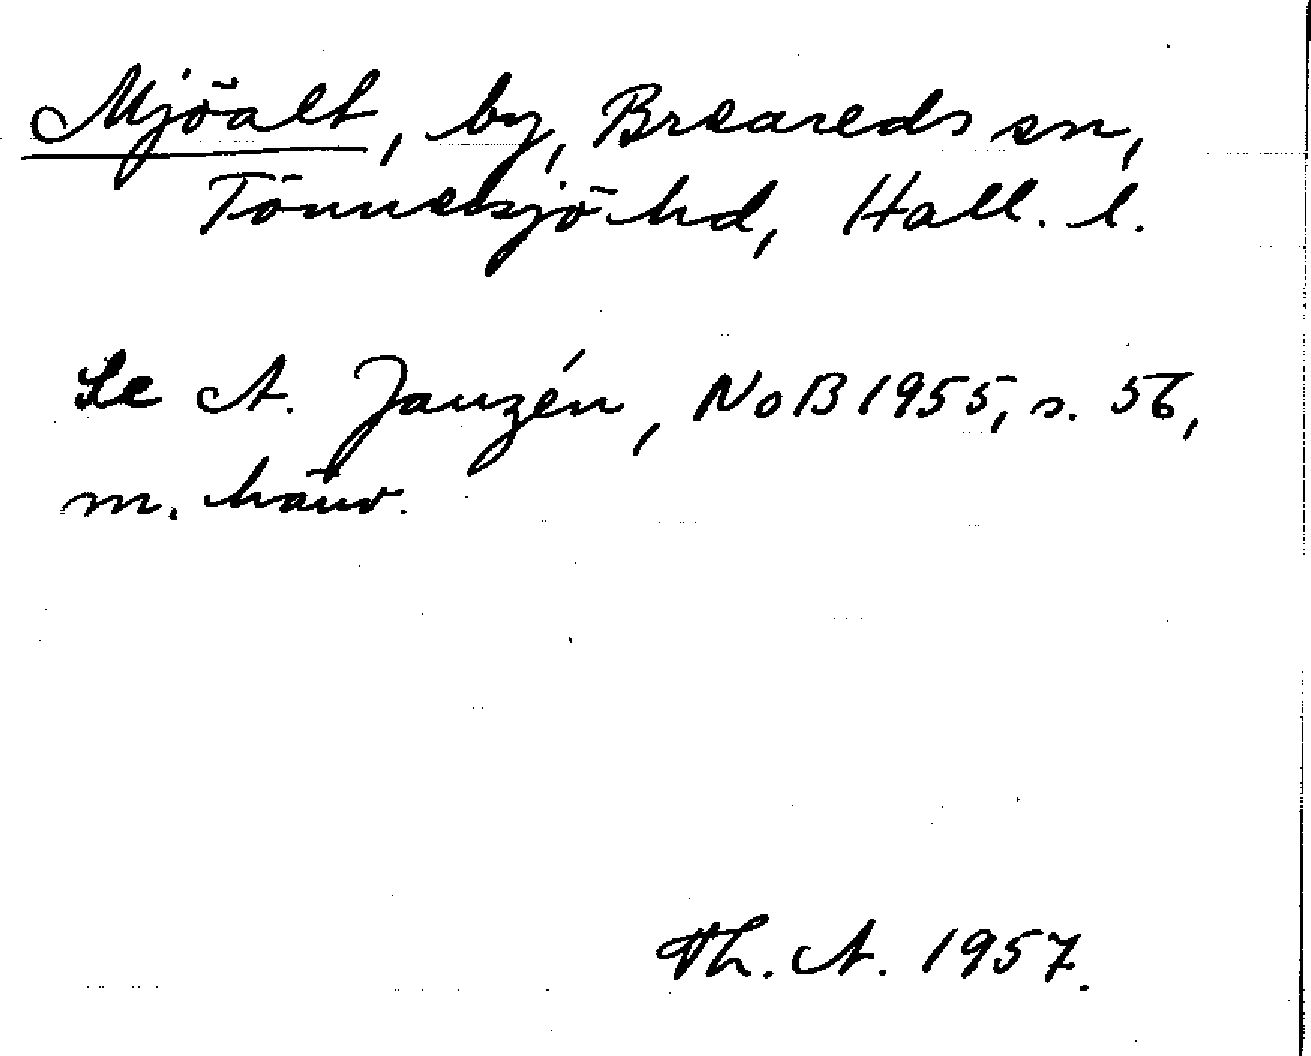 Mjöalt, by, Breareds sn,
Tönnersjö hd, Hall. l.
Se A. Janzén, NoB 1955, s. 56,
m. hänv.
Th. A. 1957.